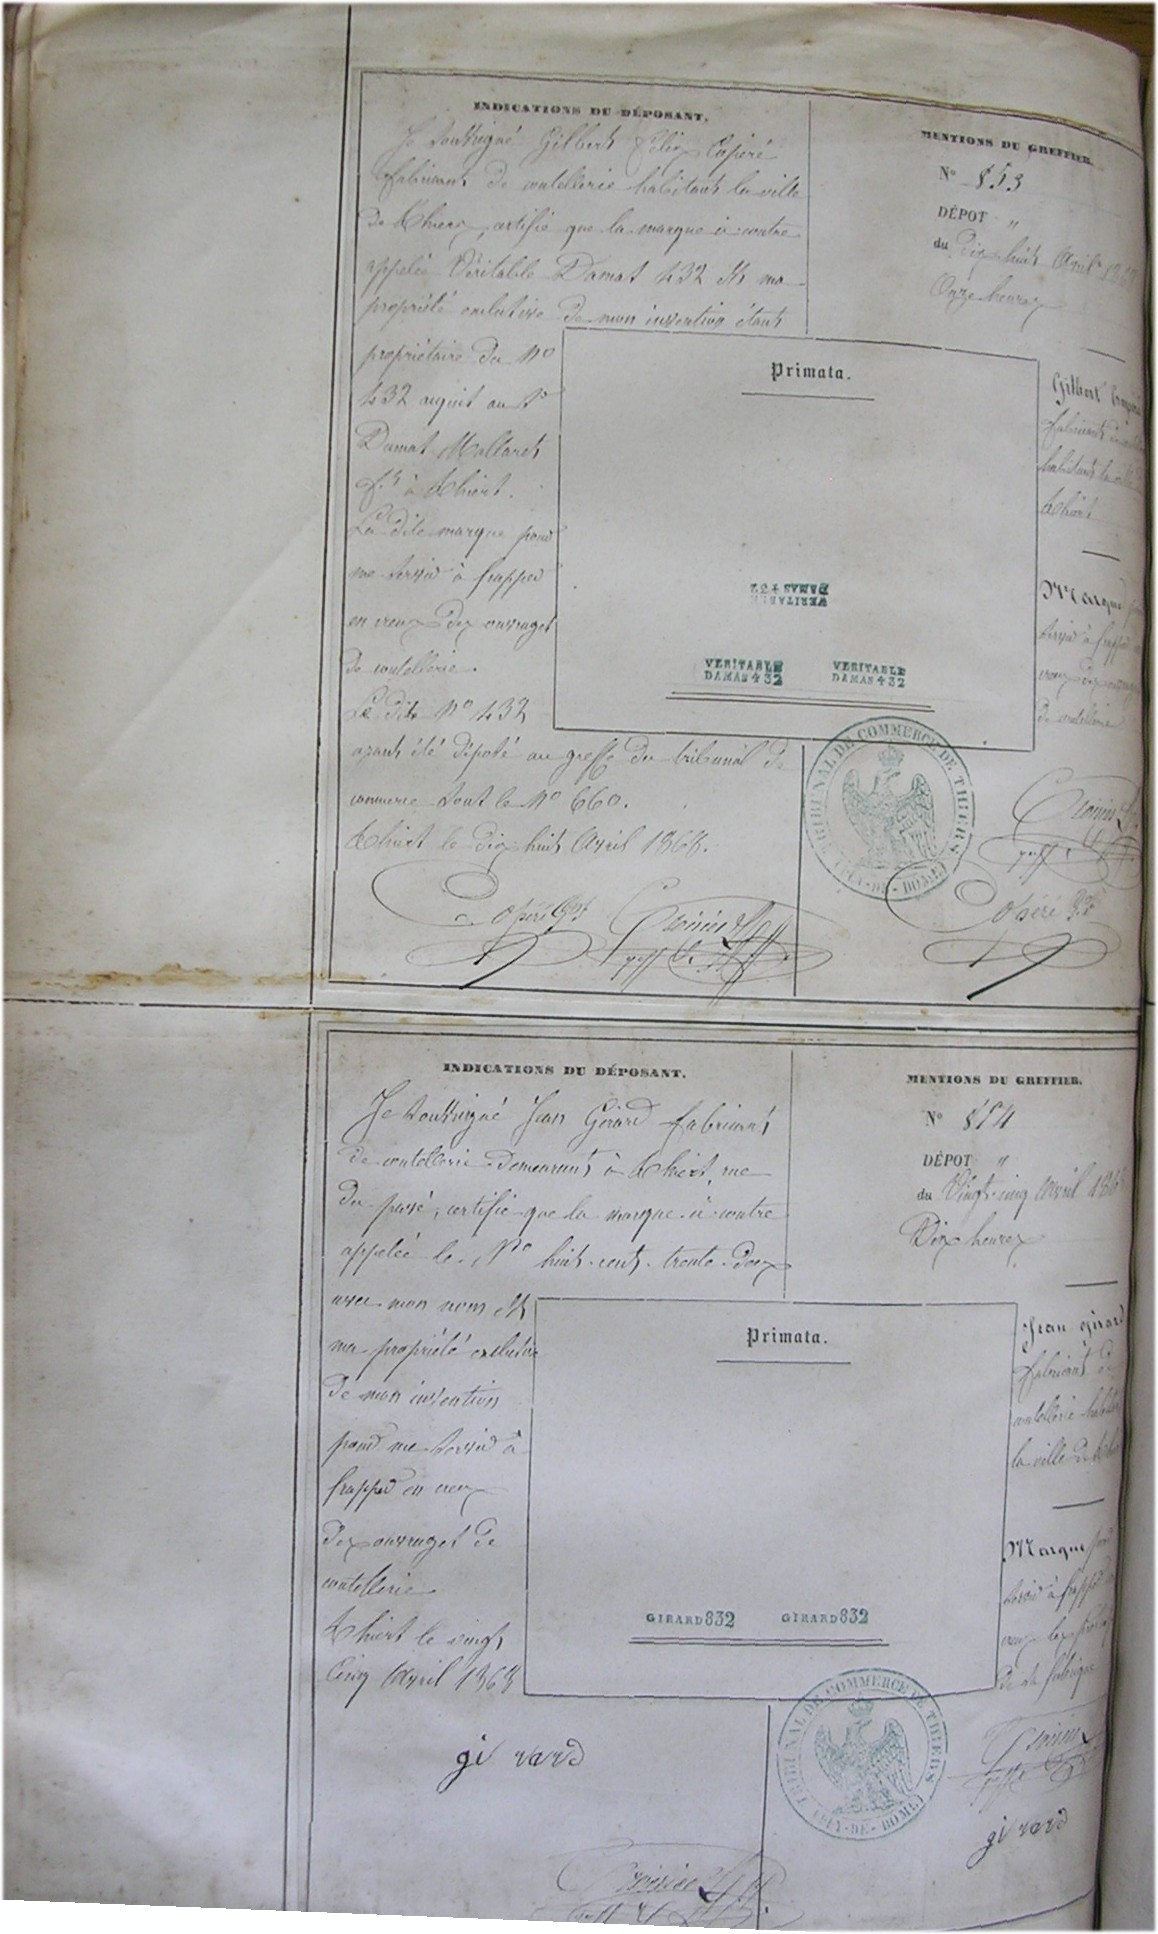 INDICATIONS DU DÉPOSANT.
Je soussigné Gilbert Félix Copéré
fabricant de coutellerie habitant la ville
de Thiers, certifie que la marque ci-contre
appelée Véritable Damas 432 est ma
propriété exclusive de mon invention étant
propriétaire du No
432 acquit au Sr
Damat Mallaret
à Thiers.
La dite marque pour
me servir à frapper
en creux des ouvrages
de coutellerie.
Le dit No 432
ayant été déposé au greffe du tribunal de
commerce sous le No 660.
Thiers le dix huit Avril 1868.
Copéré
MENTIONS DU GREFFIER.
No 853
DÉPOT "
du dix huit Avril
Onze heures
Gilbert
fabricant
habitant la ville
Thiers
Marque
servir à frapper
creux
de coutellerie
Copéré
Primata.
VERITABLE
DAMAS 432
VERITABLE DAMAS 432
VERITABLE DAMAS 432
TRIBUNAL DE COMMERCE DE THIERS
(PUY-DE-DOME)
INDICATIONS DU DÉPOSANT.
Je soussigné Jean Girard fabricant
de coutellerie demeurant à Thiers, rue
du pavé, certifie que la marque ci-contre
appelée le No huit-cent-trente-deux
avec mon nom est
ma propriété exclusive
de mon invention
pour me servir à
frapper en creux
des ouvrages de
coutellerie
Thiers le vingt
Cinq Avril 1868
girard
MENTIONS DU GREFFIER.
No 854
DÉPOT "
du Vingt-cinq Avril
Dix heures
Jean girard
fabricant de
coutellerie
la ville de
Marque
servir à frapper
creux les
de sa fabrique
girard
Primata.
GIRARD832 GIRARD832
TRIBUNAL DE COMMERCE DE THIERS
(PUY-DE-DOME)